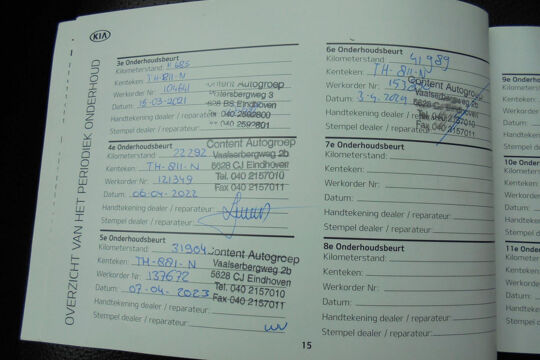 KIA
OVERZICHT VAN HET PERIODIEK ONDERHOUD
3e Onderhoudsbeurt
Kilometerstand:
Kenteken: TH-811-N
Werkorder Nr:
Datum: 16-03-2021
Handtekening dealer / reparateur:
Stempel dealer / reparateur:
Content Autogroep
5628 BS Eindhoven
Tel. 040 2592800
Fax 040 2592801
4e Onderhoudsbeurt
Kilometerstand: 22292
Kenteken: TH-811-N
Werkorder Nr: 121349
Datum: 06-04-2022
Handtekening dealer / reparateur:
Stempel dealer / reparateur:
Content Autogroep
Vaalserbergweg 2b
5628 CJ Eindhoven
Tel. 040 2157010
Fax 040 2157011
5e Onderhoudsbeurt
Kilometerstand: 31904
Kenteken: TH-881-N
Werkorder Nr: 137672
Datum: 07-04-2023
Handtekening dealer / reparateur:
Stempel dealer / reparateur:
Content Autogroep
Vaalserbergweg 2b
5628 CJ Eindhoven
Tel. 040 2157010
Fax 040 2157011
15
6e Onderhoudsbeurt
Kilometerstand: 41989
Kenteken: TH-811-N
Werkorder Nr:
Datum: 3-4-2024
Handtekening dealer / reparateur:
Stempel dealer / reparateur:
Content Autogroep
Vaalserbergweg 2b
5628 CJ Eindhoven
7e Onderhoudsbeurt
Kilometerstand:
Kenteken:
Werkorder Nr:
Datum:
Handtekening dealer / reparateur:
Stempel dealer / reparateur:
8e Onderhoudsbeurt
Kilometerstand:
Kenteken:
Werkorder Nr:
Datum:
Handtekening dealer / reparateur:
Stempel dealer / reparateur:
9e Onderh
Kilometerst
Kenteken:
Werkorder
Datum:
Handteken
Stempel de
10e Onde
Kilometers
Kenteken:
Werkorder
Datum:
Handteken
Stempel d
11e Onde
Kilometer
Kenteken
Werkorde
Datum:
Handteke
Stempel